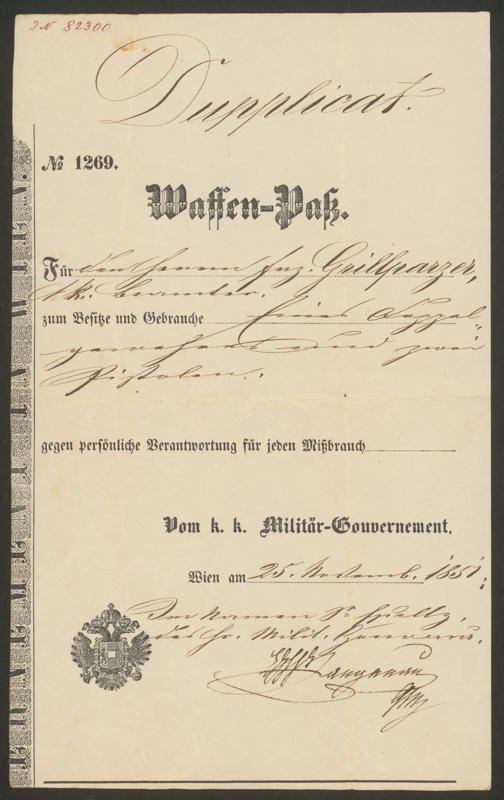 IN 82300
Dupplicat.
№ 1269.
Waffen-Paß.
Für den Herrn Frz. Grillparzer,
k.k. Beamter.
zum Besitze und Gebrauche Eines Doppel-
gewehres und zwei
Pistolen.
gegen persönliche Verantwortung für jeden Mißbrauch
Vom k. k. Militär-Gouvernement.
Wien am 25. Novemb. 1851.
Im Namen Sr
des Hr. Milit.